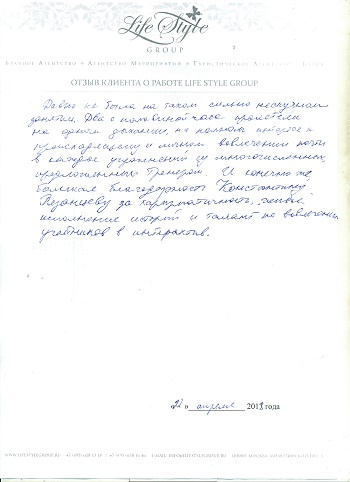 Life Style
GROUP
Брачное Агентство • Агентство Мероприятий • Туристическое Агентство
ОТЗЫВ КЛИЕНТА О РАБОТЕ LIFE STYLE GROUP
Давно не была на таком сильно нескучном
занятии. Два с половиной часа пролетели
на одном дыхании, на полном интересе к
происходящему и личном вовлечении почти
в каждое упражнений из многочисленных
предложенных Тренером. И конечно же
большая благодарность Константину
за харизматичность,
исполнение историй и талант по вовлечению
участников в интерактив.
«22» апреля 2018 года
WWW.LIFESTYLEGROUP.RU